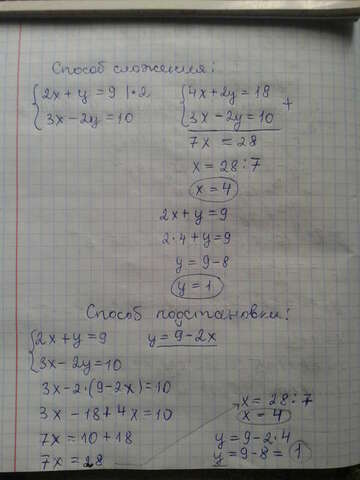 Способ сложения:
{2x + y = 9 | ·2
{3x − 2y = 10
{4x + 2y = 18
{3x − 2y = 10 +
7x = 28
x = 28 : 7
x = 4
2x + y = 9
2 · 4 + y = 9
y = 9 − 8
y = 1
Способ подстановки:
{2x + y = 9
{3x − 2y = 10
y = 9 − 2x
3x − 2 · (9 − 2x) = 10
3x − 18 + 4x = 10
7x = 10 + 18
7x = 28
x = 28 : 7
x = 4
y = 9 − 2 · 4
y = 9 − 8 = 1